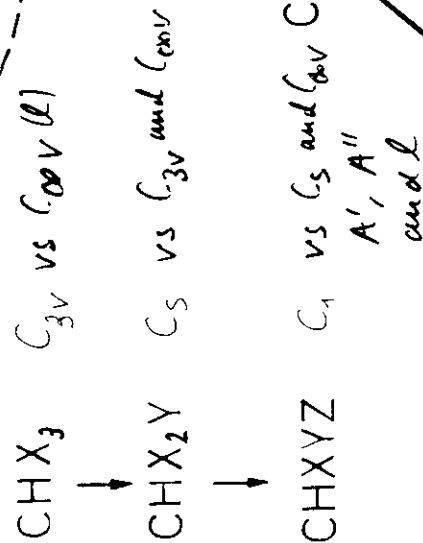 CHX₃ C₃ᵥ vs C∞ᵥ (l)
CHX₂Y Cₛ vs C₃ᵥ and C∞ᵥ
CHXYZ C₁ vs Cₛ and C∞ᵥ C
A', A"
and l